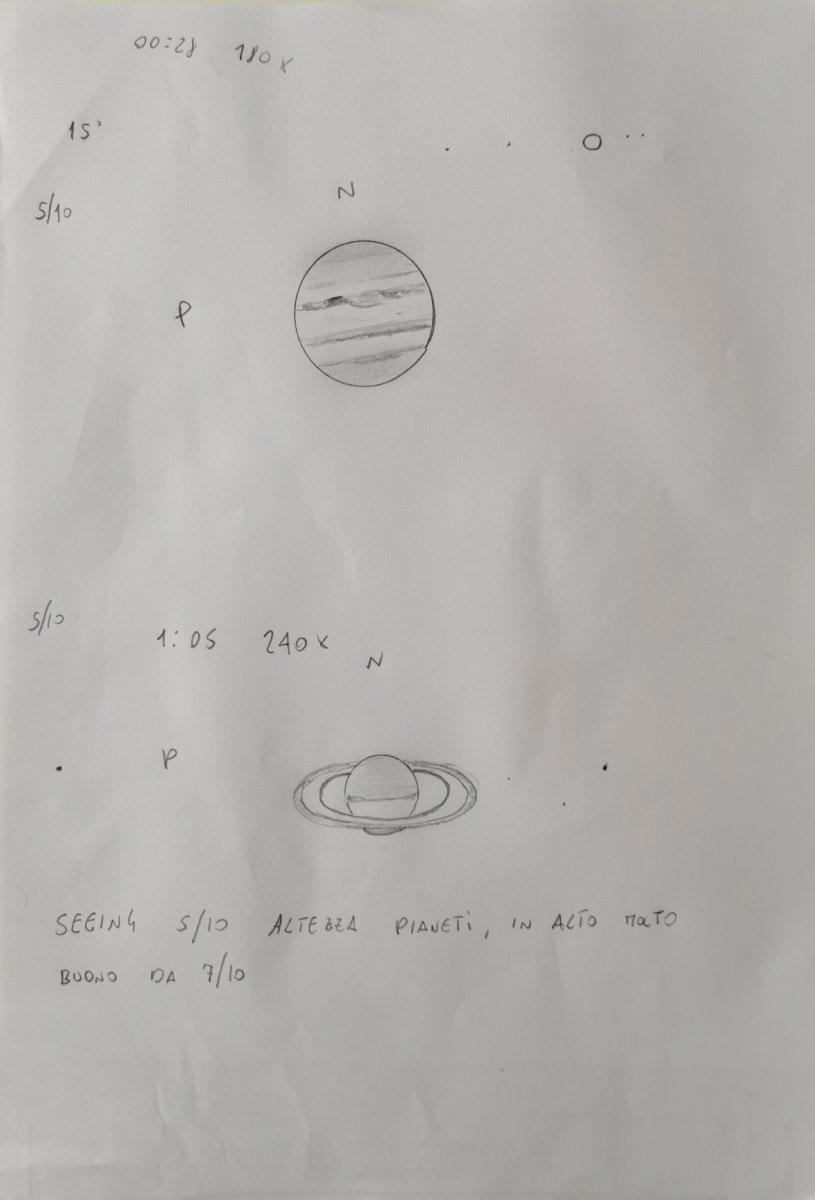 00:28 180x
15°
5/10
N
P
5/10
1:05 240x
N
P
SEEING 5/10 ALTEZZA PIANETI, IN ALTO MOLTO
BUONO DA 7/10